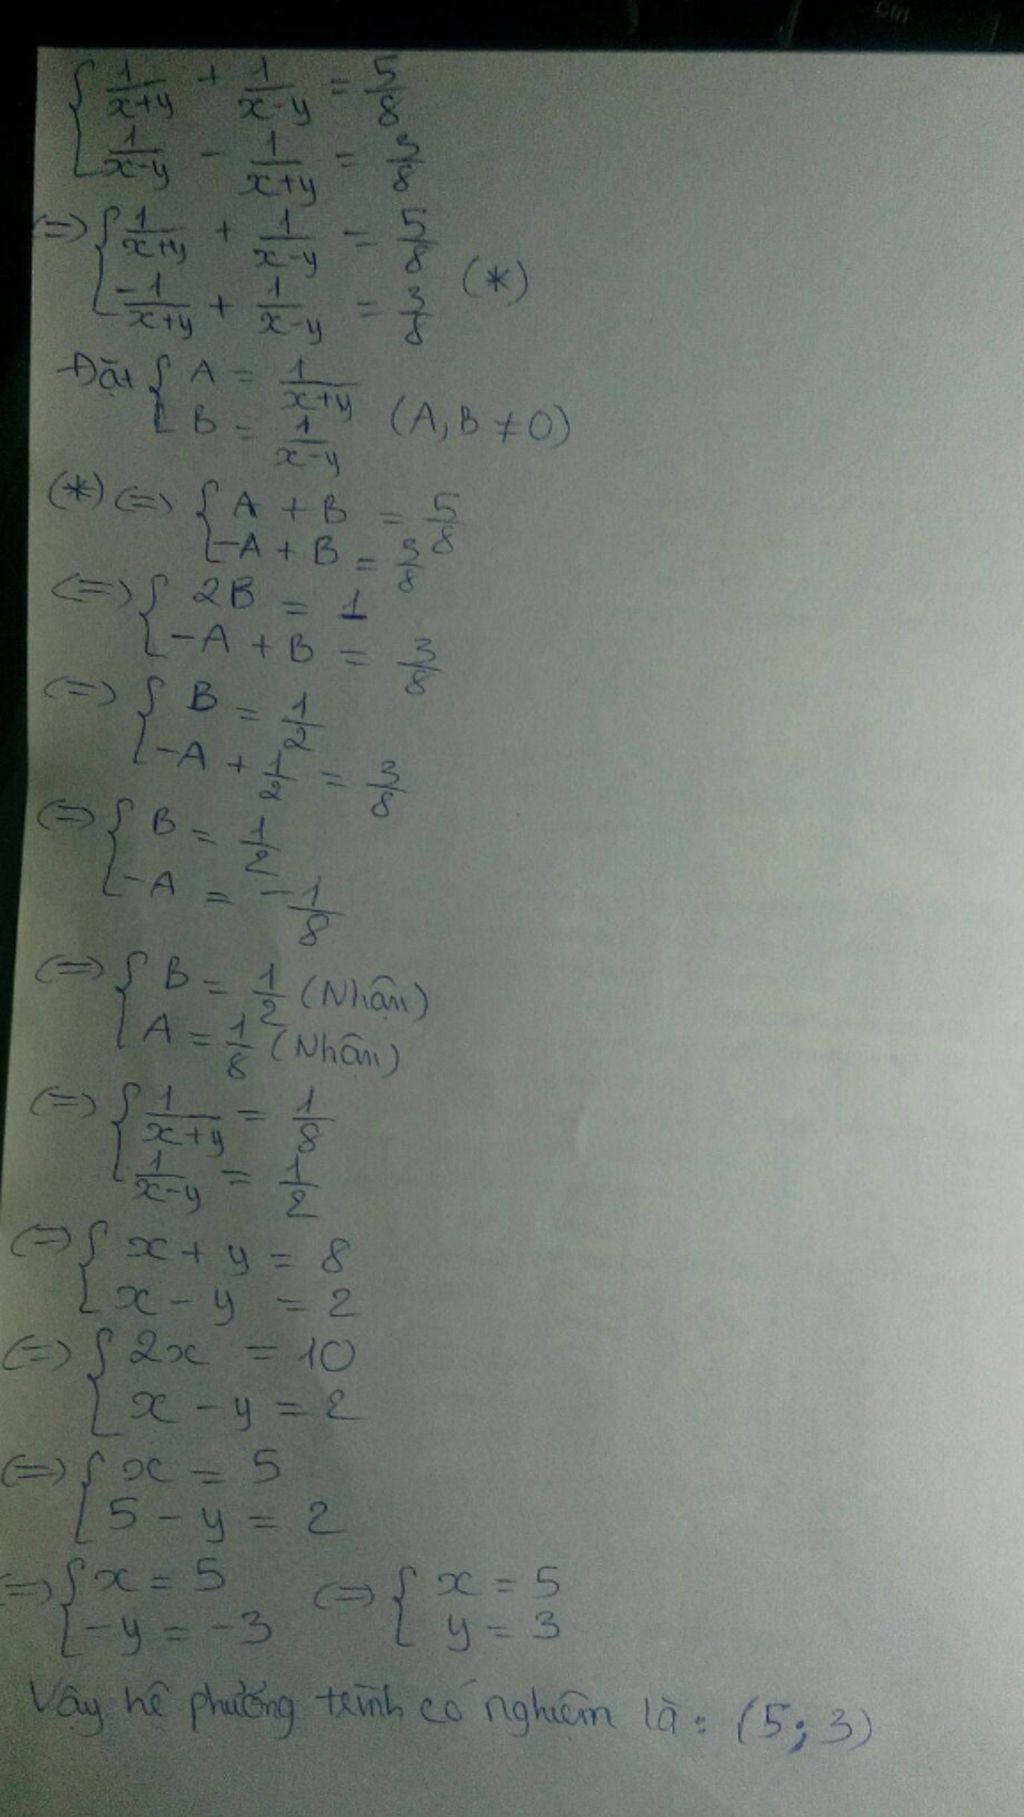 { 1/(x+y) + 1/(x-y) = 5/8
1/(x-y) - 1/(x+y) = 3/8
(=) { 1/(x+y) + 1/(x-y) = 5/8
-1/(x+y) + 1/(x-y) = 3/8 (*)
Đặt { A = 1/(x+y)
B = 1/(x-y) (A, B ≠ 0)
(*) (=) { A + B = 5/8
-A + B = 3/8
(=) { 2B = 1
-A + B = 3/8
(=) { B = 1/2
-A + 1/2 = 3/8
(=) { B = 1/2
-A = -1/8
(=) { B = 1/2 (Nhận)
A = 1/8 (Nhận)
(=) { 1/(x+y) = 1/8
1/(x-y) = 1/2
(=) { x + y = 8
x - y = 2
(=) { 2x = 10
x - y = 2
(=) { x = 5
5 - y = 2
(=) { x = 5 (=) { x = 5
-y = -3 y = 3
Vậy hệ phương trình có nghiệm là: (5; 3)